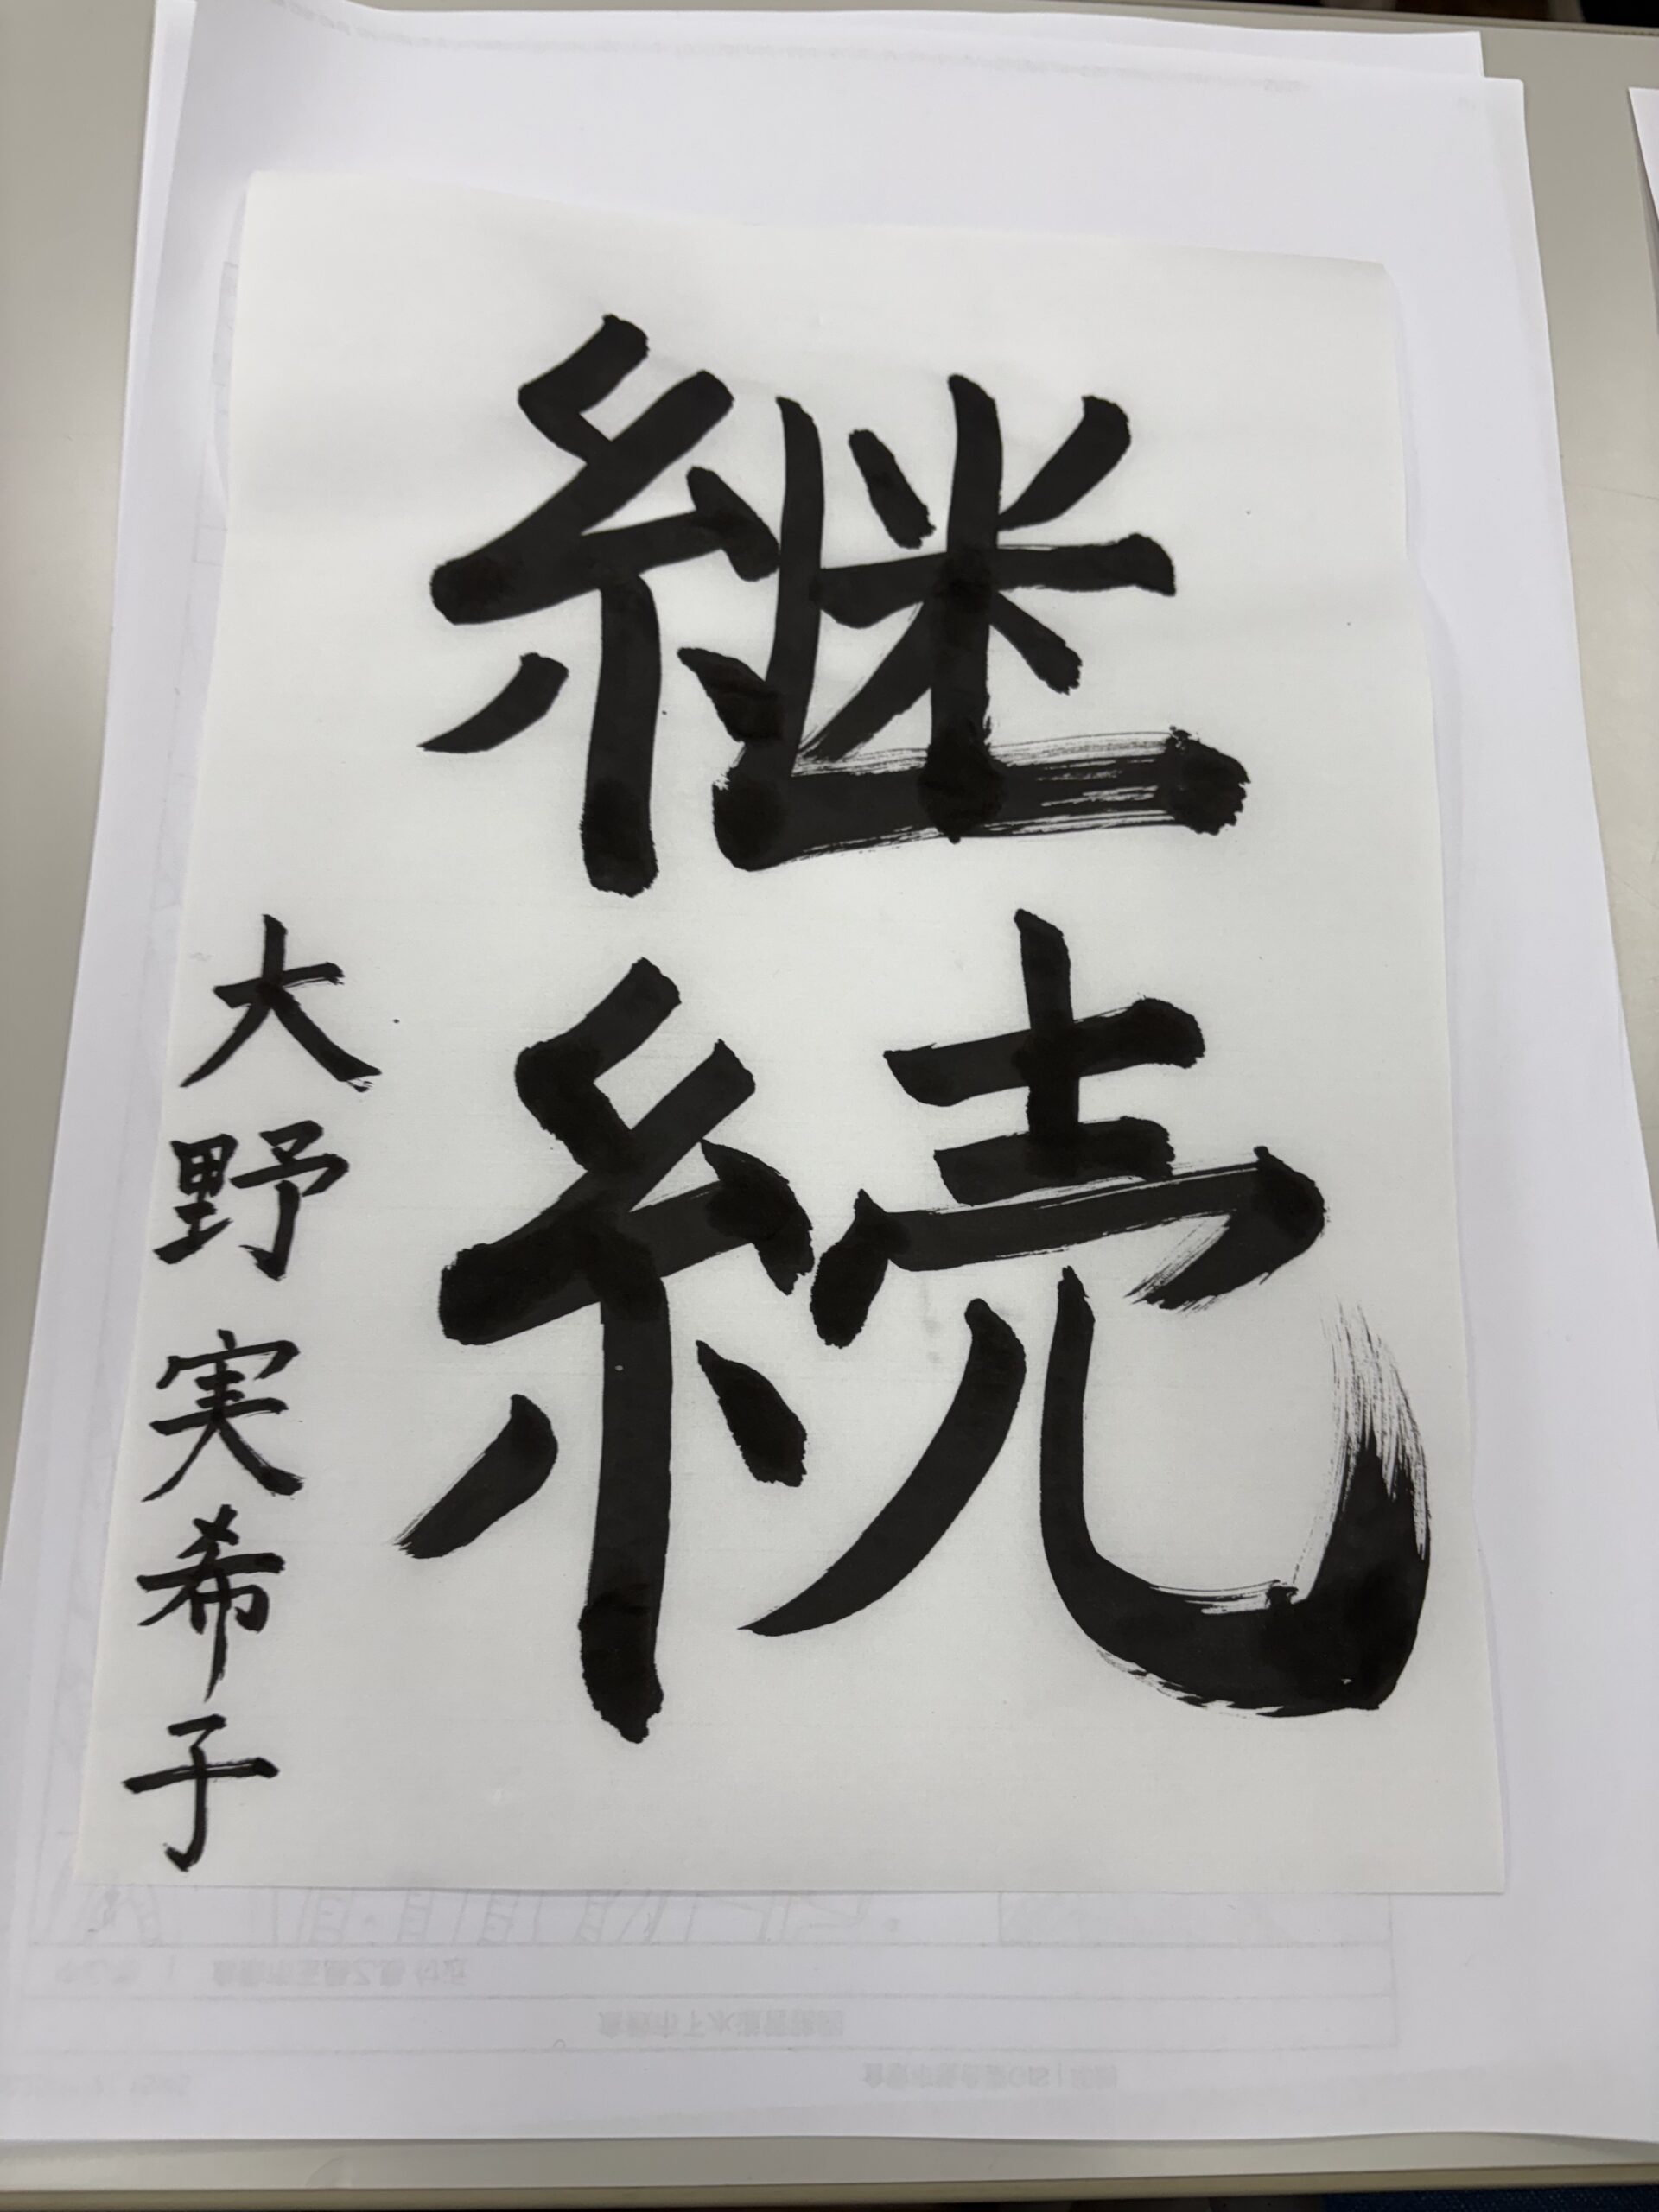 継続
大野実希子